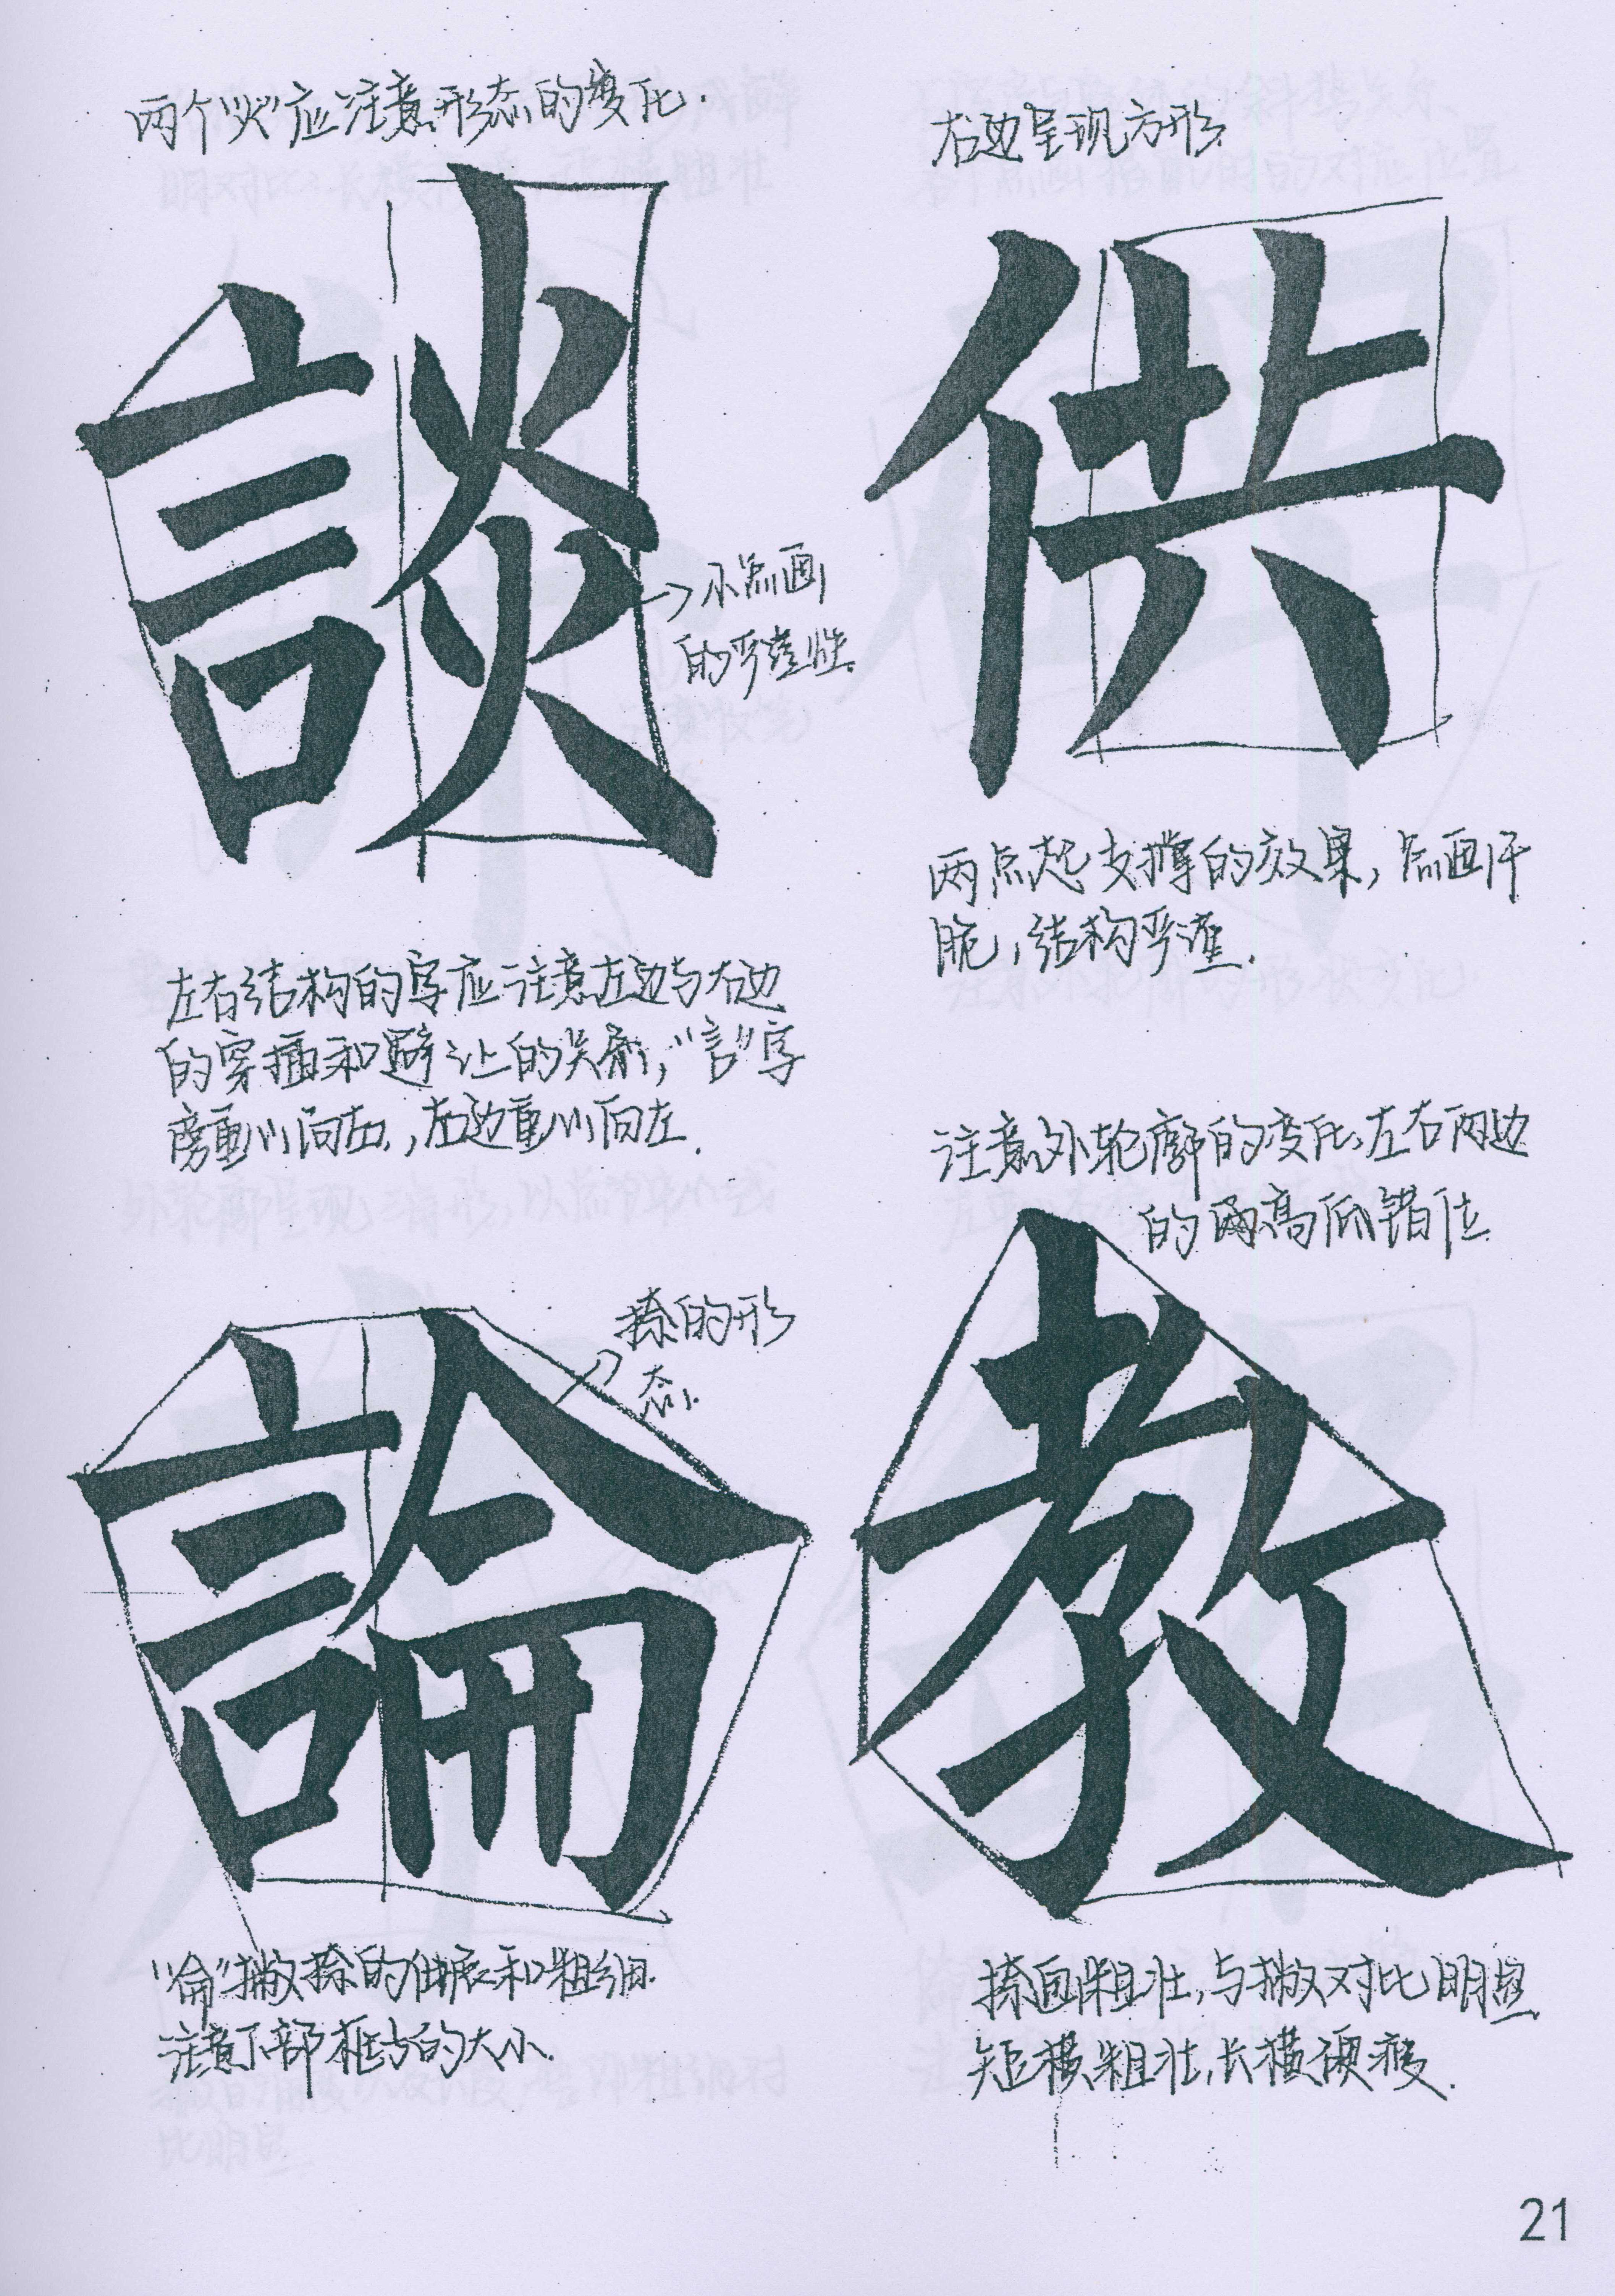 两个"火"应注意形态的变化.
談
→小点画
的严谨性.
左右结构的字应注意左边与右边
的穿插和避让的关系,"言"字
旁重心向右,右边重心向左.
右边呈现方形
供
两点起支撑的效果,点画干
脆,结构严谨.
→捺的形
态.
論
"侖"撇捺的伸展和粗细.
注意下部框方的大小.
注意外轮廓的变化,左右两边
的两高低错位
教
捺画粗壮,与撇对比明显.
短横粗壮,长横硬瘦.
21